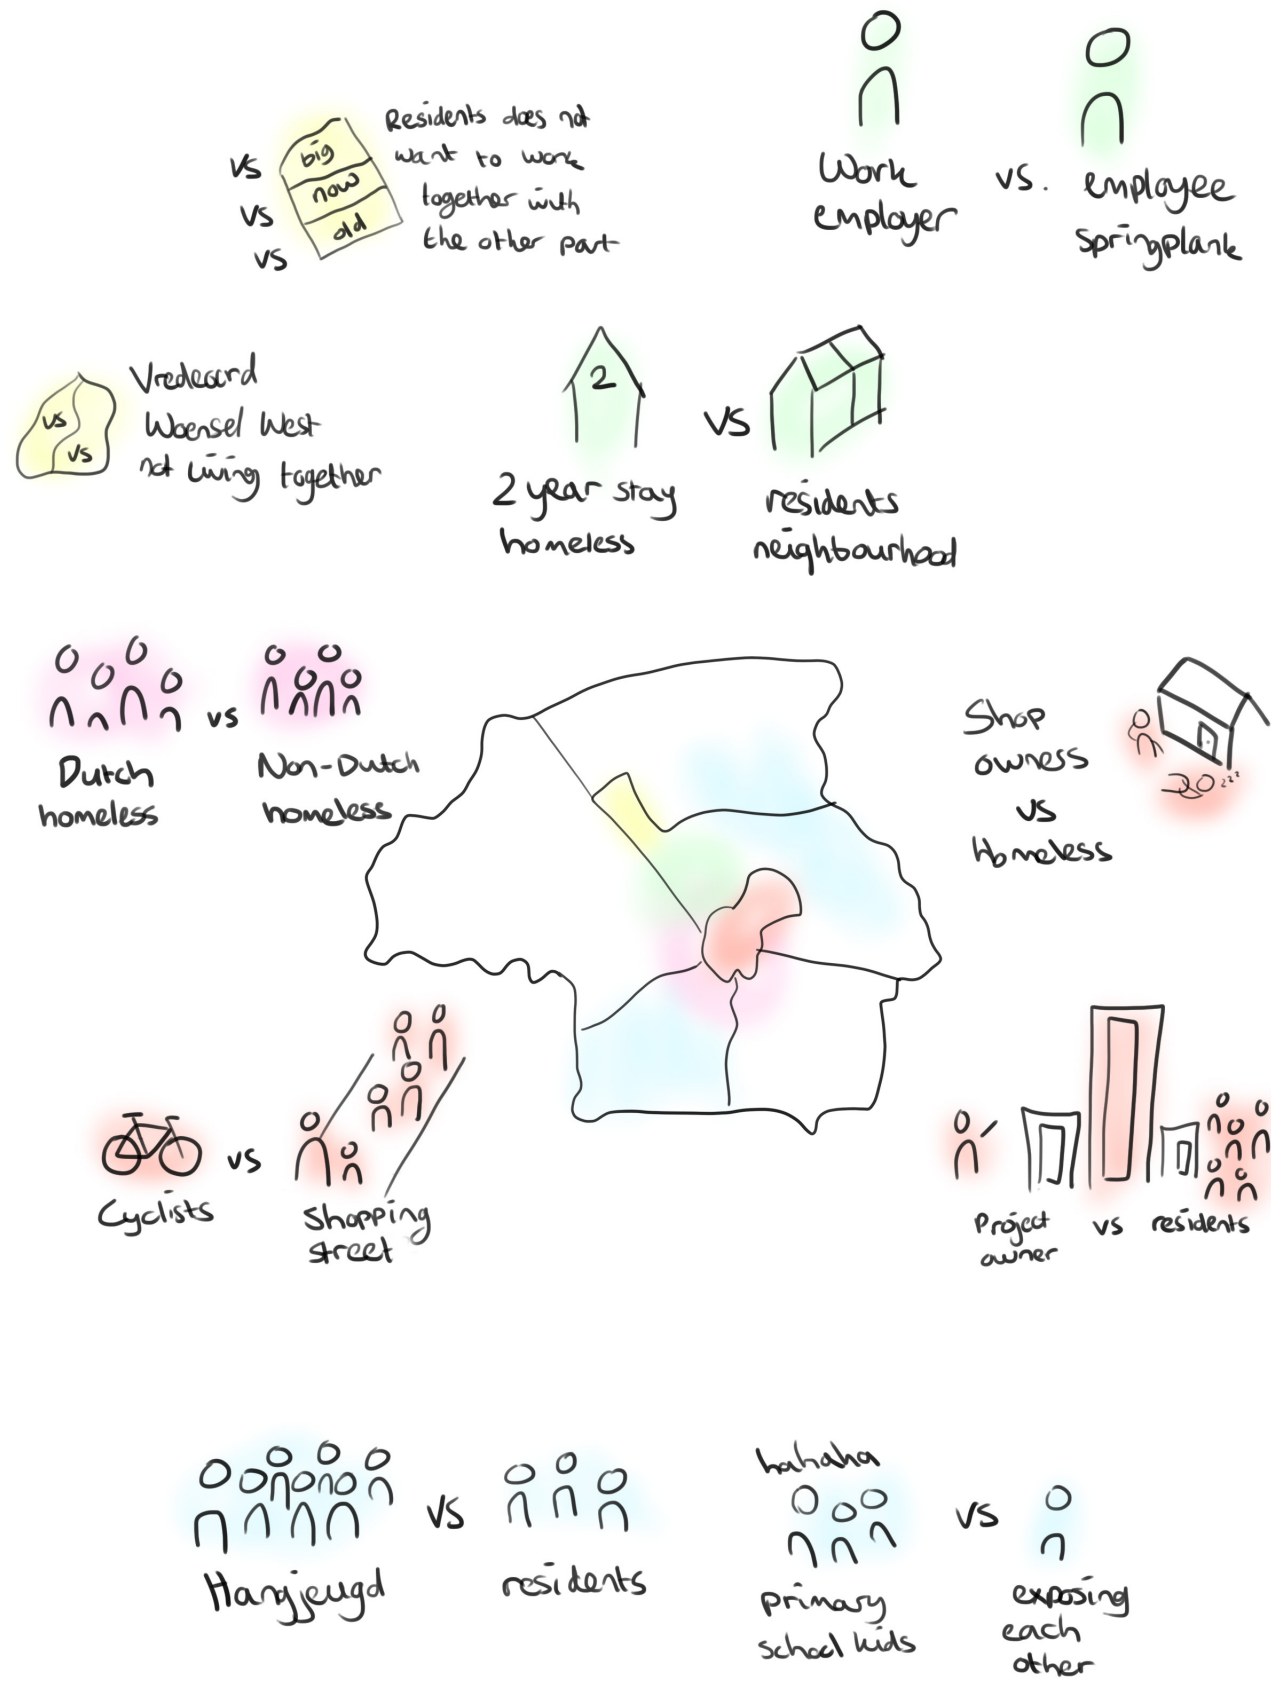 Work
employer
vs.
employee
springplank
vs
vs
vs
big
now
old
Residents does not
want to work
together with
the other part
vs
vs
Vredeoord
Woensel West
not living together
2
2 year stay
homeless
vs
residents
neighbourhood
Dutch
homeless
vs
Non-Dutch
homeless
Shop
owners
vs
Homeless
zzz
Cyclists
vs
Shopping
street
Project
owner
vs
residents
Hangjeugd
vs
residents
hahaha
primary
school kids
vs
exposing
each
other